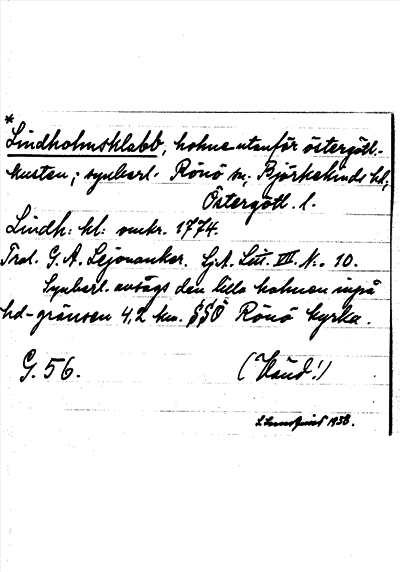 *
Lindholmsklabb, holme utanför östergötl.
kusten; synbarl. Rönö sn; Björkekinds hd,
Östergötl. l.
Lindh: kl: omkr. 1774.
Trol. G. A. Lejonanker. L.A. Litt. VII N:o 10.
Synbarl. avsågs den lilla holmen inpå
hd-gränsen 4,2 km. SSÖ Rönö kyrka.
G. 56. (Vänd!)
1938.